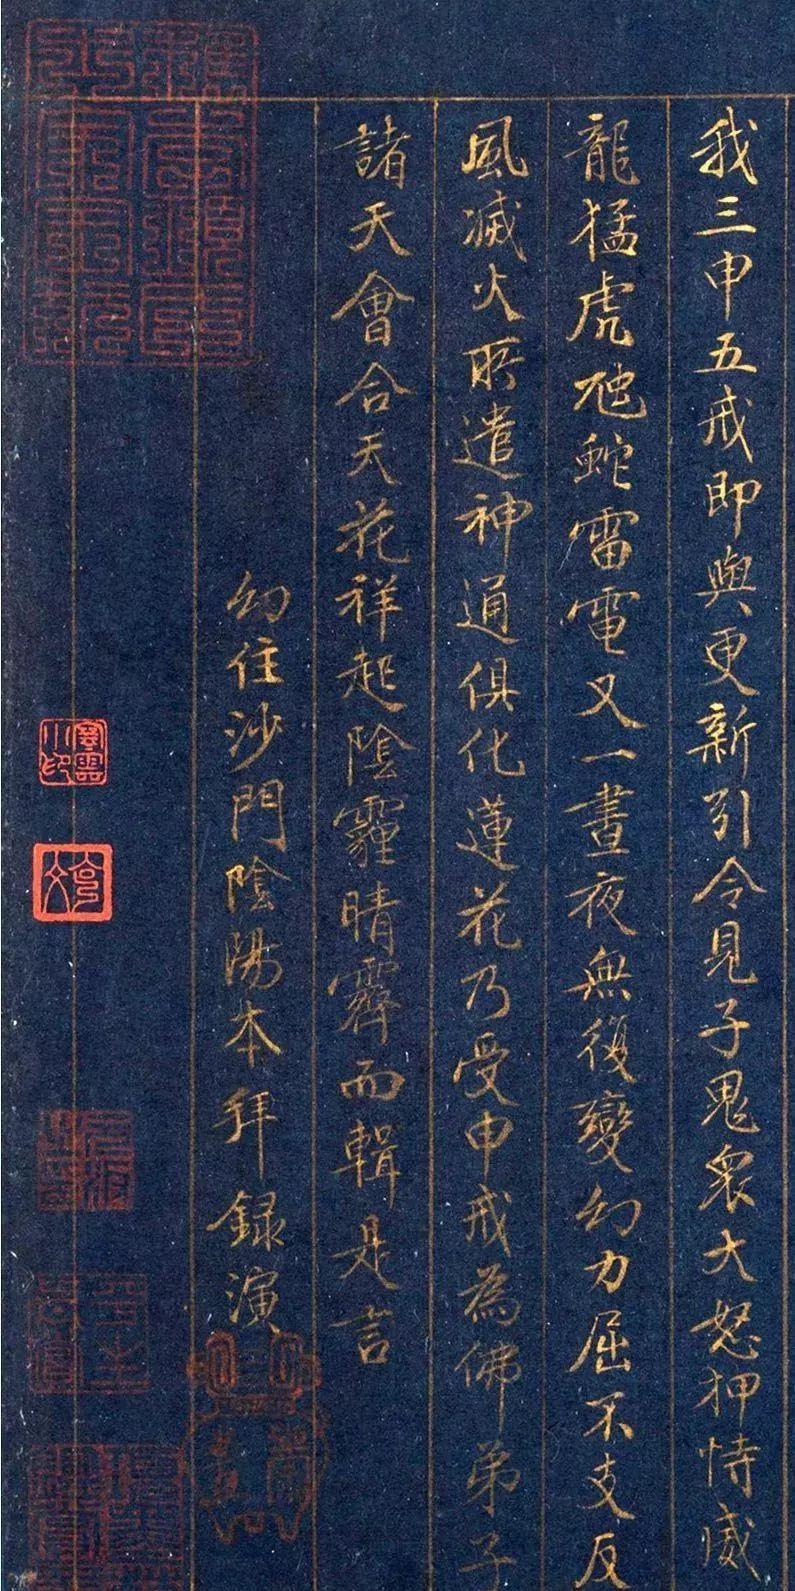 我三申五戒即與更新引令見子鬼衆大怒狎恃威
龍猛虎虺蛇雷電又一晝夜無復變幻力屈不支反
風滅火所遣神通俱化蓮花乃受申戒為佛弟子
諸天會合天花祥起陰霾晴霽而輯是言
幻住沙門陰陽本拜録演